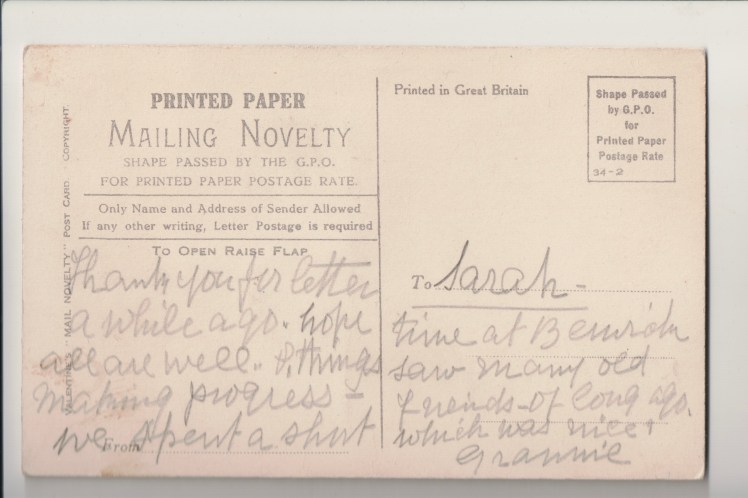 VALENTINE'S "MAIL NOVELTY" POST CARD COPYRIGHT.
PRINTED PAPER
MAILING NOVELTY
SHAPE PASSED BY THE G.P.O.
FOR PRINTED PAPER POSTAGE RATE.
Only Name and Address of Sender Allowed
If any other writing, Letter Postage is required
TO OPEN RAISE FLAP
Thank you for letter
a while ago. hope
all are well. & things
making progress –
From we spent a short
Printed in Great Britain
Shape Passed
by G.P.O.
for
Printed Paper
Postage Rate
34-2
To Sarah –
time at Berwick
saw many old
friends – of long ago.
which was nice
Grannie